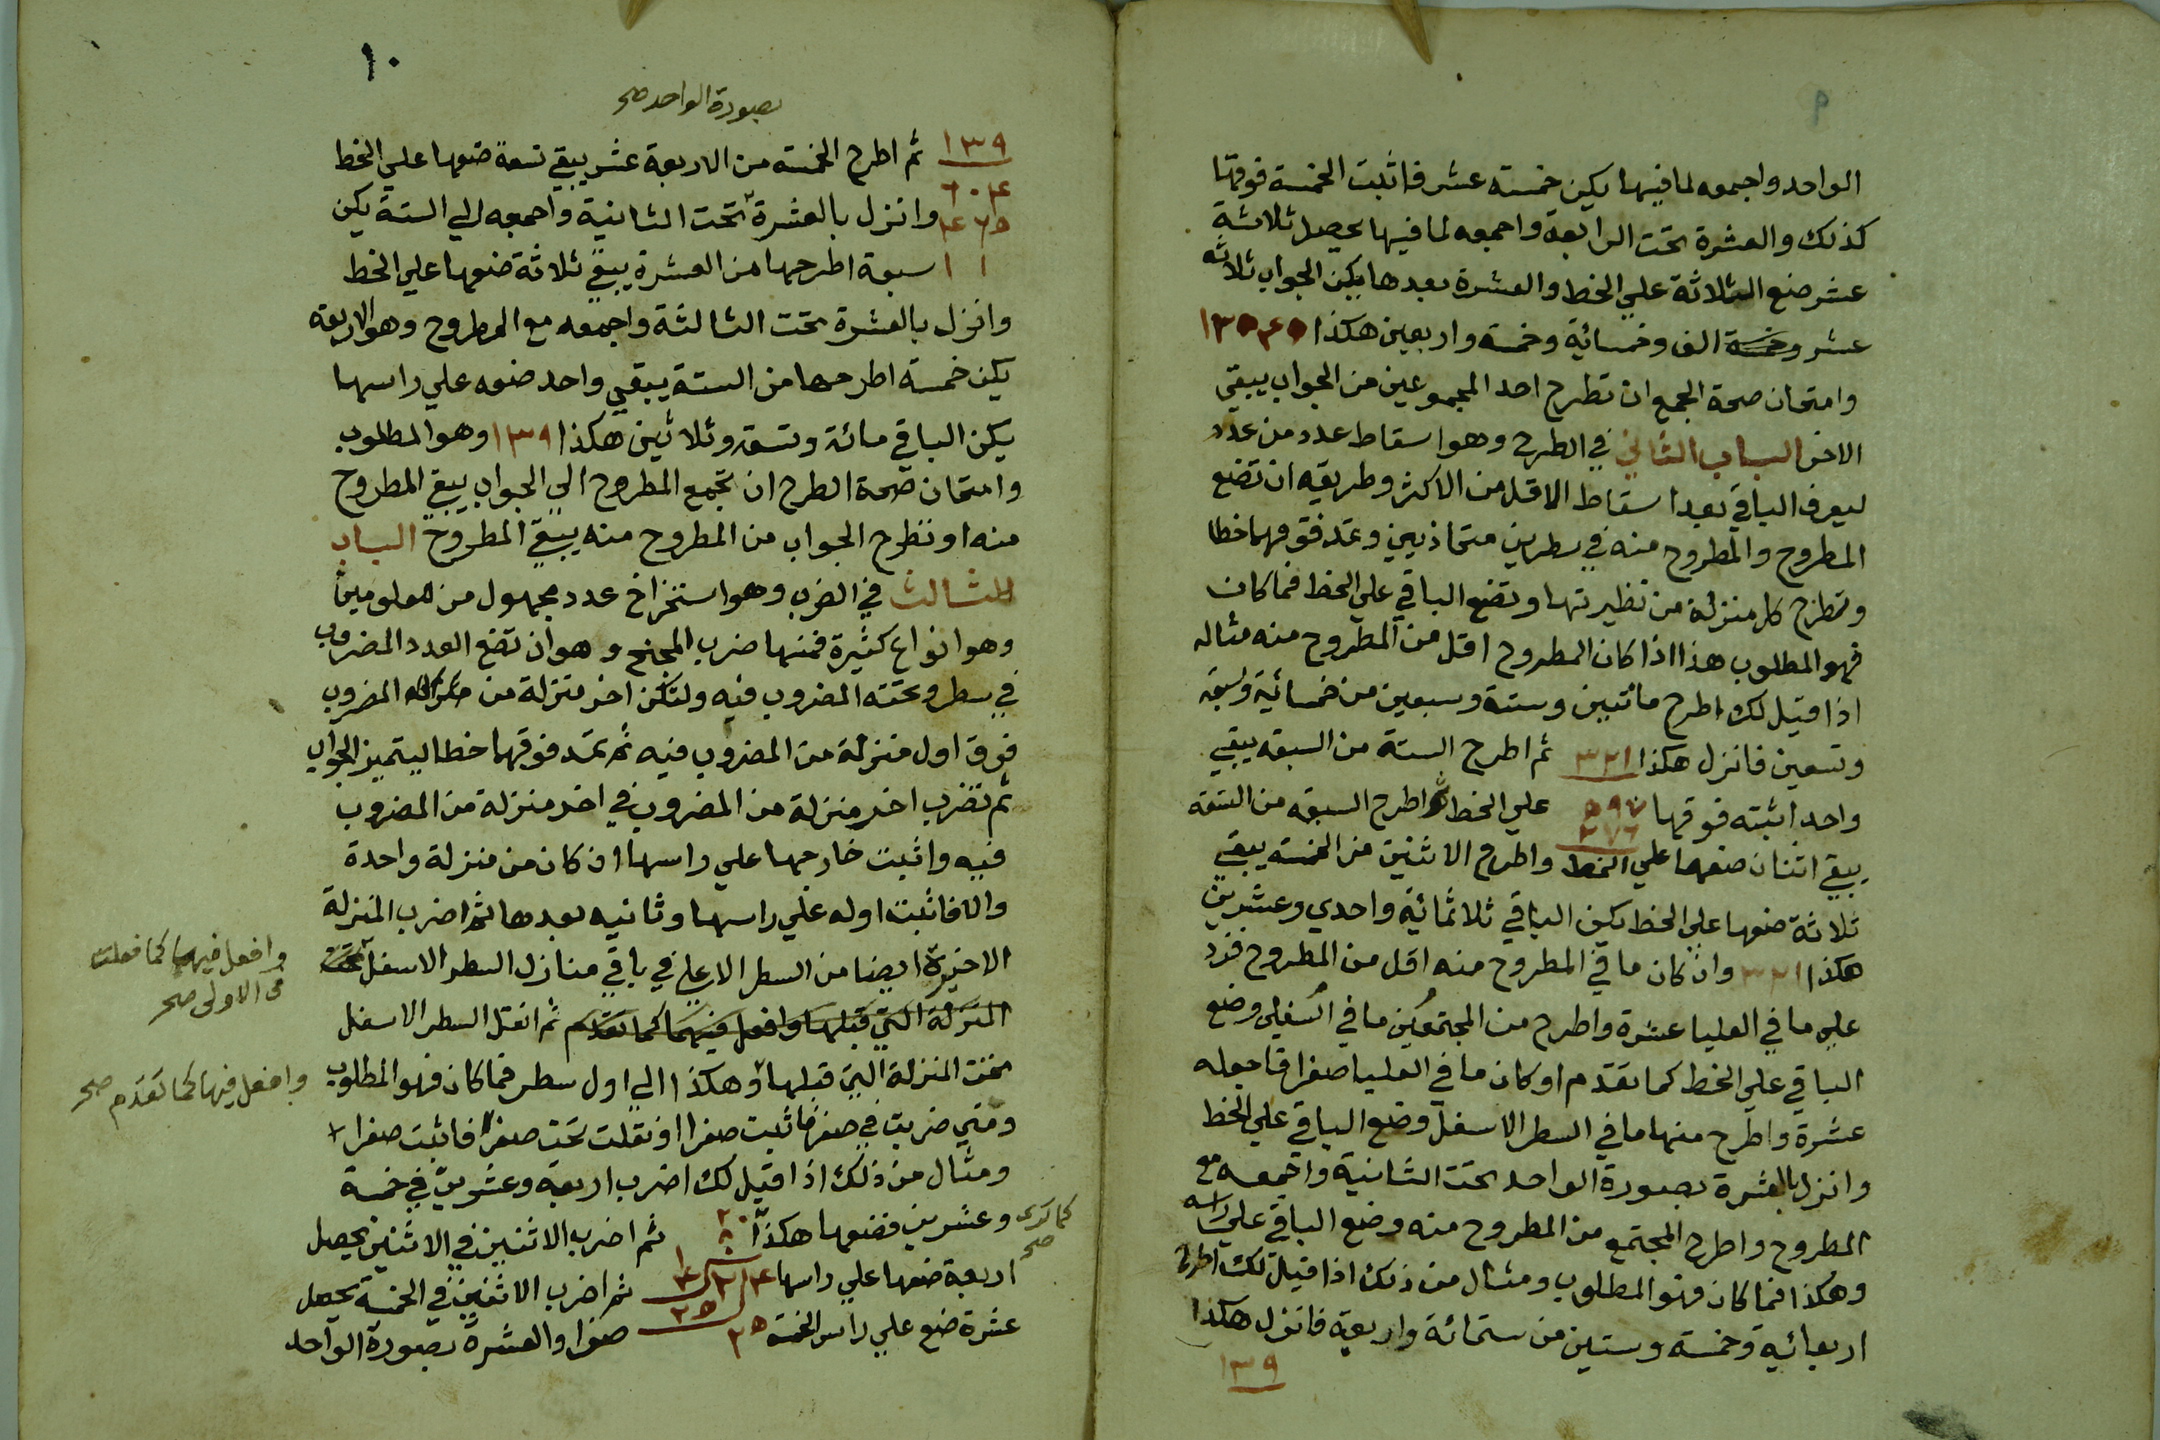 ٩
الواحد واجمعه لما فيها يكن خمسة عشر فاثبت الخمسة فوقها
كذلك والعشرة تحت الرابعة واجمعه لما فيها يحصل ثلاثة
عشر ضع الثلاثة علي الخط والعشرة بعدها يكن الجواب ثلاثة
عشر وخمسة الف وخمسائية وخمسة واربعين هكذا ١٣٥٤٥
وامتحان صحة الجمع ان تطرح احد المجموعين من الجواب يبقي
الاخر الباب الثاني في الطرح وهو اسقاط عدد من عدد
ليعرف الباقي بعد اسقاط الاقل من الاكثر وطريقه ان تضع
المطروح والمطروح منه في سطرين متحاذيين وتمد فوقهما خطا
وتطرح كل منزلة من نظيرتها وتضع الباقي علي الخط فما كان
فهو المطلوب هذا اذا كان المطروح اقل من المطروح منه مثاله
اذا قيل لك اطرح مائتين وستة وسبعين من خمسائية وسبعة
وتسعين فانزل هكذا ٣٢١ ثم اطرح الستة من السبعه يبقي
واحد اثبته فوقها ٥٩٧ علي الخط ثم اطرح السبعه من التسعه
٢٧٦
يبقي اثنان ضعهما علي الخط واطرح الاثنين من الخمسة يبقي
ثلاثة ضعها علي الخط يكن الباقي ثلاثمائة واحدي وعشرين
هكذا ٣٢١ وان كان ما في المطروح منه اقل من المطروح فزد
علي ما في العليا عشرة واطرح من المجتمع ما في السفلي وضع
الباقي علي الخط كما تقدم او كان ما في العليا صفرا فاجعله
عشرة واطرح منها ما في السطر الاسفل وضع الباقي علي الخط
وانزل بالعشرة بصورة الواحد تحت الثانية واجمعه مع
المطروح واطرح المجتمع من المطروح منه وضع الباقي علي راسه
وهكذا فما كان فهو المطلوب ومثال من ذلك اذا قيل لك اطرح
اربعائية وخمسة وستين من ستمائة واربعة فانزل هكذا
١٣٩
١٠
بصورة الواحد صح
١٣٩ ثم اطرح الخمسة من الاربعة عشر يبقي تسعة ضعها علي الخط
٦٠٤
٤٦٥ وانزل بالعشرة تحت الثانية واجمعه الي الستة يكن
١ ١ سبعة اطرحها من العشرة يبقي ثلاثة ضعها علي الخط
وانزل بالعشرة تحت الثالثة واجمعه مع المطروح وهو الاربعة
يكن خمسة اطرحها من الستة يبقي واحد ضعه علي راسها
يكن الباقي مائة وتسعة وثلاثين هكذا ١٣٩ وهو المطلوب
وامتحان صحة الطرح ان تجمع المطروح الي الجواب يبقي المطروح
منه او تطرح الجواب من المطروح منه يبقي المطروح الباب
الثالث في الضرب وهو استخراخ عدد مجهول من معلومين
وهو انواع كثيرة فمنها ضرب المجنح وهو ان تضع العدد المضروب
في سطر وتحته المضروب فيه ولتكن اخر منزلة من المضروب
فوق اول منزلة من المضروب فيه ثم تمد فوقهما خطا ليتميز الجواب
ثم تضرب اخر منزلة من المضروب في اخر منزلة من المضروب
فيه واثبت خارجها علي راسها ان كان من منزلة واحدة
والا فاثبت اوله علي راسها وثانيه بعدها ثم اضرب المنزلة
الاخيرة ايضا من السطر الاعلي في باقي منازل السطر الاسفل تحت
المنزلة التي قبلها وافعل فيهما كما تقدم ثم انقل السطر الاسفل
تحت المنزلة التي قبلها وهكذا الي اول سطر فما كان فهو المطلوب
ومتي ضربت في صفر فاثبت صفرا او نقلت تحت صفر فاثبت صفرا
ومثال من ذلك اذا قيل لك اضرب اربعة وعشرين في خمسة
وعشرين فضعها هكذا ثم اضرب الاثنين في الاثنين يحصل
اربعة ضعها علي راسها ثم اضرب الاثنين في الخمسة يحصل
عشرة ضع علي راس الخمسة ٢٥ صفرا والعشرة بصورة الواحد
وافعل فيها كما فعلت
في الاولي صح
وافعل فيها كما تقدم صح
كما تري
صح